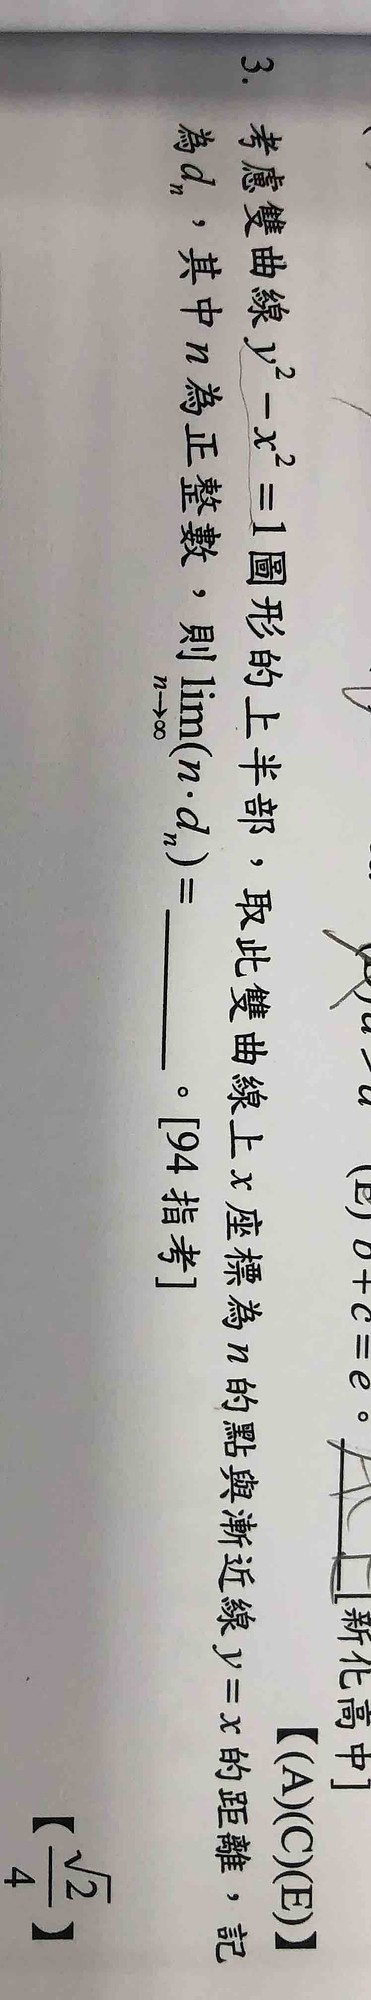 (E) b + c = e。 [新化高中]
【(A)(C)(E)】
3. 考慮雙曲線 y² − x² = 1 圖形的上半部，取此雙曲線上 x 座標為 n 的點與漸近線 y = x 的距離，記
為 dₙ，其中 n 為正整數，則 lim(n·dₙ) = ______。[94 指考]
n→∞
【√2/4】